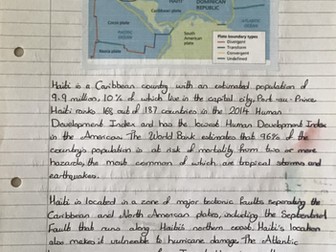 HAITI
DOMINICAN
REPUBLIC
Caribbean plate
Cocos plate
Nazca plate
South
American
plate
ATLANTIC
OCEAN
Plate boundary types
Divergent
Transform
Convergent
Undefined
Haiti is a Caribbean country with an estimated population of
9.9 million, 10% of which live in the capital city, Port-au-Prince.
Haiti ranks 168 out of 187 countries in the 2014 Human
Development Index and has the lowest Human Development Index
in the Americas. The World Bank estimates that 96% of the
country's population is at risk of mortality from two or more
hazards, the most common of which are tropical storms and
earthquakes.
Haiti is located in a zone of major tectonic faults separating the
Caribbean and North American plates, including the Septentrional
Fault that runs along Haiti's northern coast. Haiti's location
also makes it vulnerable to hurricane damage. The Atlantic